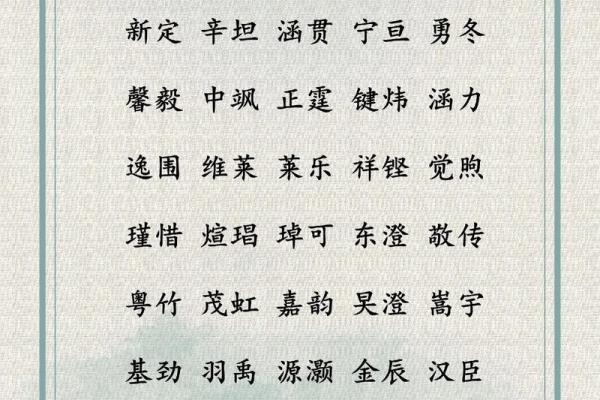 新定 辛坦 涵贯 宁亘 勇冬
馨毅 中飒 正霆 键炜 涵力
逸围 维莱 莱乐 祥铿 觉煦
瑾惜 煊琩 琸可 东澄 敬传
粤竹 茂虹 嘉韵 旲澄 嵩宇
基劲 羽禹 源灏 金辰 汉臣